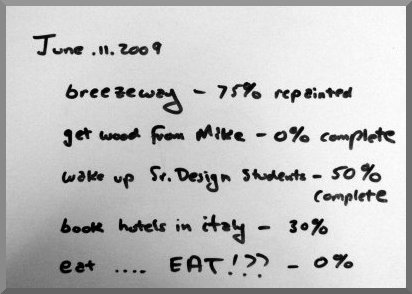 June .11.2009
breezeway - 75% repainted
get wood from Mike - 0% complete
wake up Sr. Design Students - 50%
complete
book hotels in italy - 30%
eat .... EAT!?? - 0%